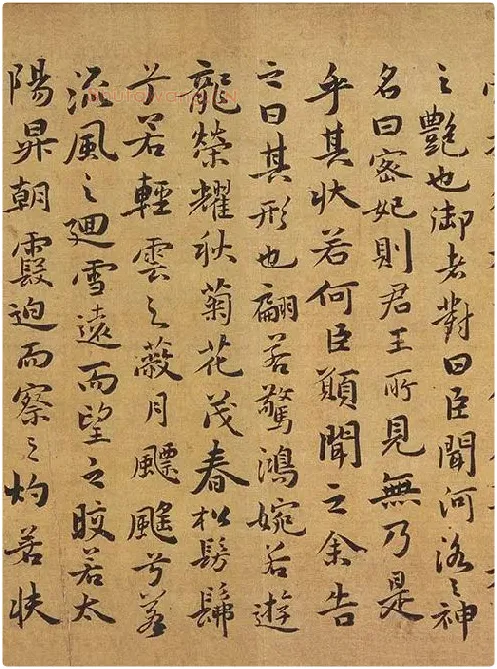 之艷也御者對曰臣聞河洛之神
名曰宻妃則君王所見無乃是
乎其狀若何臣願聞之余告
之曰其形也翩若驚鴻婉若遊
龍榮耀秋菊花茂春松髣髴
兮若輕雲之蔽月飄颻兮若
流風之廻雪遠而望之皎若太
陽昇朝霞迫而察之灼若芙